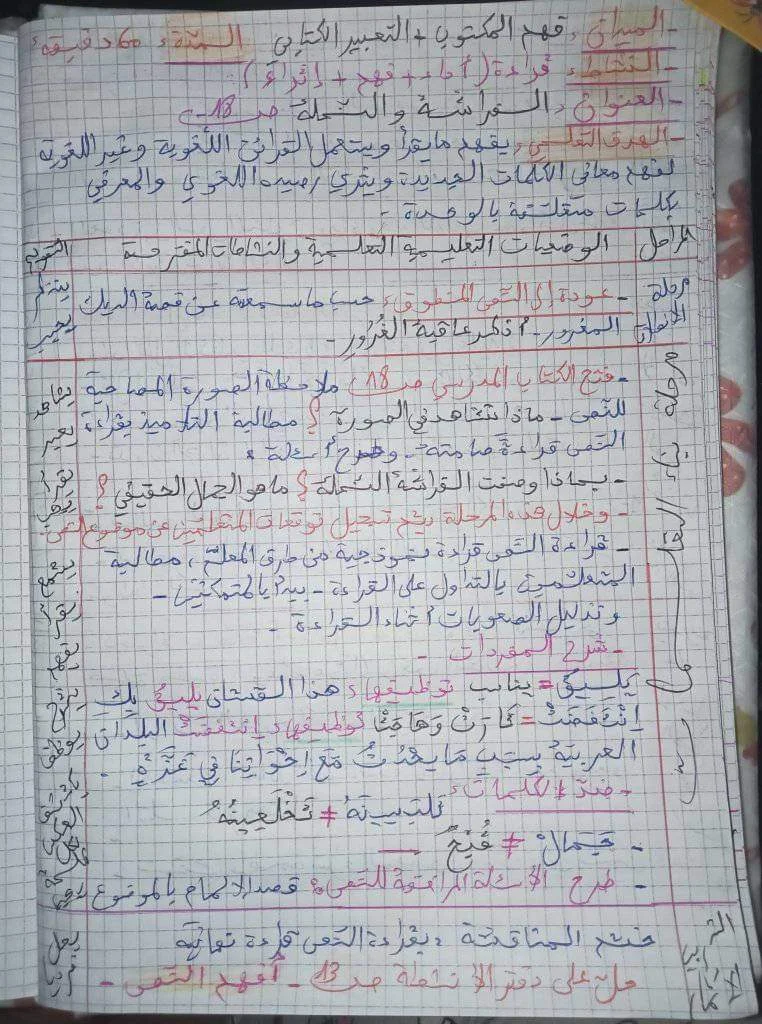 - الميدان: فهم المكتوب + التعبير الكتابي المدة: 60 دقيقة
- النشاط: قراءة (أداء + فهم + إثراء)
- العنوان: الفراشة والنملة ص 18
- الهدف التعلمي: يفهم ما يقرأ ويستعمل القرائن اللغوية وغير اللغوية
لفهم معاني الكلمات الجديدة ويثري رصيده اللغوي والمعرفي
بكلمات متعلقة بالوحدة -
المراحل الوضعيات التعليمية التعلمية والنشاطات المقترحة التقويم
مرحلة الانطلاق
- عودة إلى النص المنطوق: حسب ما سمعته عن قصة الديك
المغرور - أذكر عاقبة الغُرُورِ -
يتذكر
يعبر
- فتح الكتاب المدرسي ص 18 ملاحظة الصورة المصاحبة
للنص - ماذا تشاهد في الصورة؟ مطالبة التلاميذ بقراءة
النص قراءة صامتة - وطرح أسئلة:
- بماذا وصفت الفراشة النملة؟ ما هو الجمال الحقيقي؟
- وخلال هذه المرحلة يتم تسجيل توقعات المتعلمين عن موضوع النص
- قراءة النص قراءة نموذجية من طرف المعلم، مطالبة
المتعلمين بالتداول على القراءة - بدءا بالمتمكنين -
وتذليل الصعوبات أثناء القراءة -
- شرح المفردات -
يَلِيقُ = يناسب توظيفها: هذا الفستان يليق بِكِ
اِنْتَفَضَتْ = ثَارَتْ وَهَاجَتْ توظيفها: اِنْتَفَضَتْ البلدان
العربية بِسَبَبِ مَا يَحْدُثُ مَعَ اِخْوَاتِنَا فِي غَزَّةَ -
- ضد الكلمات:
تَلْبَسِينَهُ ≠ تَخْلَعِينَهُ
- جَمَالٌ ≠ قُبْحٌ
- طرح الأسئلة المرافقة للنص: قصد الالمام بالموضوع
يشاهد
يعبر
يقرأ
يستمع
يقرأ
يفهم
يشرح
يوظف
ختم المناقشة: بقراءة النص قراءة نهائية
حل على دفتر الأنشطة ص 13 - أفهم النص -